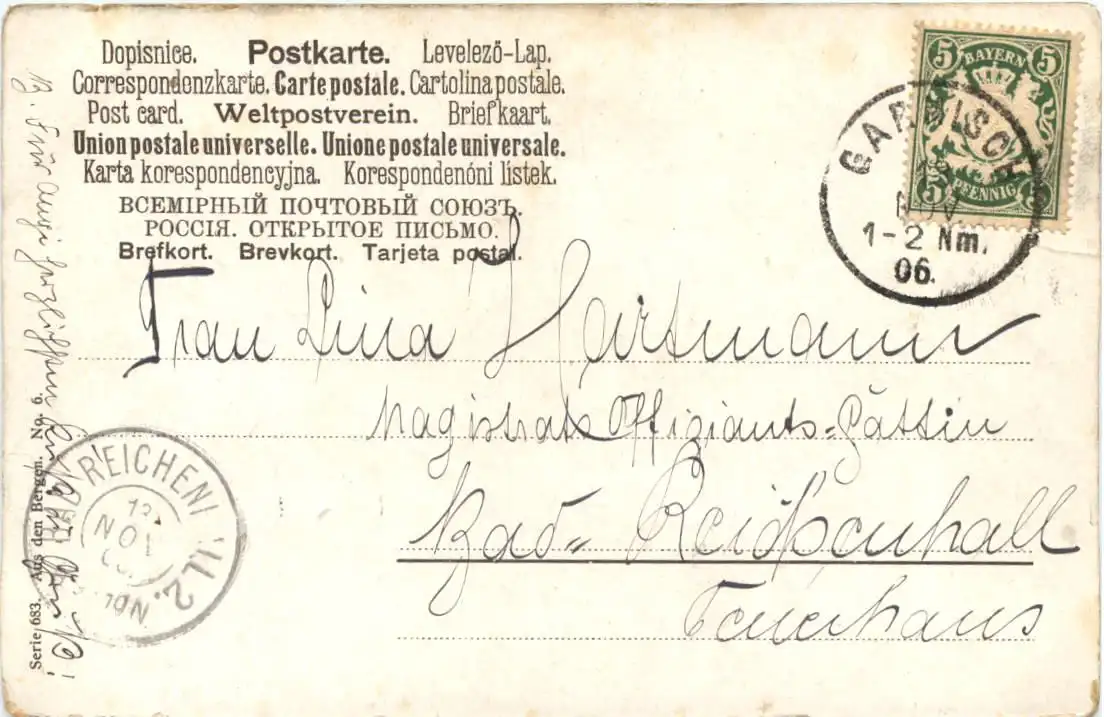 Dopisnice. Postkarte. Levelező-Lap.
Correspondenzkarte. Carte postale. Cartolina postale.
Post card. Weltpostverein. Briefkaart.
Union postale universelle. Unione postale universale.
Karta korespondencyjna. Korespondenóni listek.
ВСЕМІРНЫЙ ПОЧТОВЫЙ СОЮЗЪ.
РОССІЯ. ОТКРЫТОЕ ПИСЬМО.
Brefkort. Brevkort. Tarjeta postal.
5 BAYERN 5
5 PFENNIG 5
GARMISCH
NOV.
1-2 Nm.
06.
Frau Lina Hartmann
Magistrats Offiziants-Gattin
Bad Reichenhall
Feuerhaus
BAD REICHENHALL 2.
NOV
Serie 683. Aus den Bergen. No. 6.